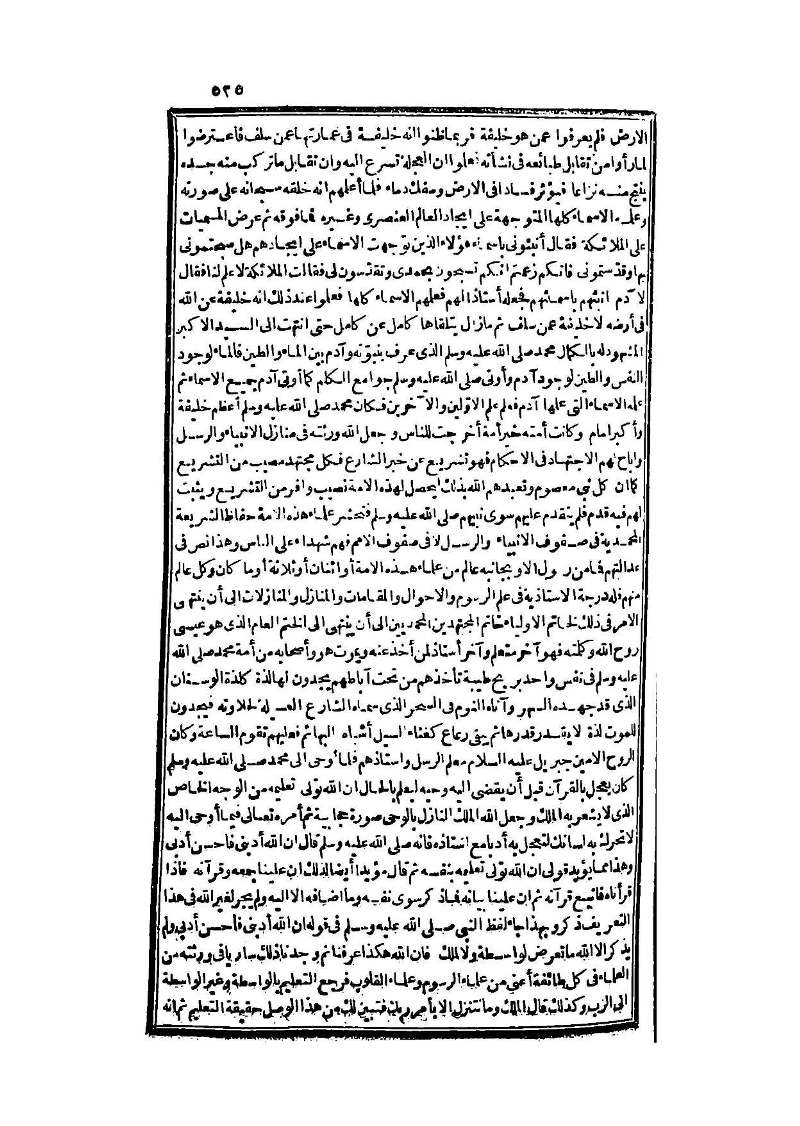 ٥٢٥
الارض فلم يعرفوا عمن هو خليفة فربما ظنوا انه خليفة فى عمارتها عمن سلف فاعترضوا
لما رأوا من تقابل طبائعه فى نشأته فعلموا ان العجلة تسرع اليه وان تقابل ما تركب منه جسده
ينتج منه نزاعا فيؤثر فسادا فى الارض وسفك دماء فلما أعلمهم انه خلقه سبحانه على صورته
وعلمه الاسماء كلها المتوجهة على ايجاد العالم العنصرى وغيره فما فوقه ثم عرض المسميات
على الملائكة فقال أنبئونى باسماء هؤلاء الذين توجهت الاسماء على ايجادهم هل سبحتمونى
بها وقدستمونى فانكم زعمتم انكم تسبحون بحمدى وتقدسون لى فقالت الملائكة لا علم لنا فقال
لآدم انبئهم باسمائهم فجعله أستاذا لهم فعلمهم الاسماء كلها فعلموا عند ذلك انه خليفة عن الله
فى أرضه لا خليفة عمن سلف ثم ما زال يتلقاها كامل عن كامل حتى انتهت الى السيد الاكبر
المشهود له بالكمال محمد صلى الله عليه وسلم الذى عرف بنبوته وآدم بين الماء والطين فالماء لوجود
النفس والطين لوجود آدم وأوتى صلى الله عليه وسلم جوامع الكلم كما أوتى آدم جميع الاسماء ثم
علمه الاسماء التى علمها آدم فعلم علم الاولين والآخرين فكان محمد صلى الله عليه وسلم أعظم خليفة
وأكبر امام وكانت أمته خير أمة أخرجت للناس وجعل الله ورثته فى منازل الانبياء والرسل
واباح لهم الاجتهاد فى الاحكام فهو تشريع عن خبر الشارع فكل مجتهد مصيب من التشريع
كما ان كل نبى معصوم وتعبدهم الله بذلك ليحصل لهذه الامة نصيب وافر من التشريع ويثبت
لهم فيه قدم فلم يتقدم عليهم سوى نبيهم صلى الله عليه وسلم فتحشر علماء هذه الامة حفاظ الشريعة
المحمدية فى صفوف الانبياء والرسل لا فى صفوف الامم فهم شهداء على الناس وهذا نص فى
عدالتهم فما من رسول الا وبجانبه عالم من علماء هذه الامة أو اثنان أو ثلاثة أو ما كان وكل عالم
منهم فله درجة الاستاذية فى علم الرسوم والاحوال والمقامات والمنازل والمنازلات الى أن ينتهى
الامر فى ذلك لخاتم الاولياء خاتم المجتهدين المحمديين الى أن ينتهى الى الختم العام الذى هو عيسى
روح الله وكلمته فهو آخر متعلم وآخر أستاذ لمن أخذ عنه ويموت هو وأصحابه من أمة محمد صلى الله
عليه وسلم فى نفس واحد بريح طيبة تأخذهم من تحت آباطهم يجدون لها لذة كلذة الوسنان
الذى قد جهده السهر وأتاه النوم فى السحر الذى سماه الشارع العسيلة لحلاوته فيجدون
للموت لذة لا يقدر قدرها ثم يبقى رعاع كغثاء السيل أشباه البهائم فعليهم تقوم الساعة وكان
الروح الامين جبريل عليه السلام معلم الرسل واستاذهم فلما أوحى الى محمد صلى الله عليه وسلم
كان يعجل بالقرآن قبل أن يقضى اليه وحيه ليعلم بالحال ان الله تولى تعليمه من الوجه الخاص
الذى لا يشعر به الملك وجعل الله الملك النازل بالوحى صورة حجابية ثم أمره تعالى فيما أوحى اليه
لا تحرك به لسانك لتعجل به أدبا مع استاذه فانه صلى الله عليه وسلم قال ان الله أدبنى فاحسن أدبى
وهذا مما يؤيد قولى ان الله تولى تعليمه بنفسه ثم قال مؤيدا أيضا لذلك ان علينا جمعه وقرآنه فاذا
قرأناه فاتبع قرآنه ثم ان علينا بيانه فما ذكر سوى نفسه وما اضافه الا اليه ولم يجر لغير الله فى هذا
التعريف ذكر وبهذا جاء لفظ النبى صلى الله عليه وسلم فى قوله ان الله أدبنى فأحسن أدبى ولم
يذكر الا الله ما تعرض لواسطة ولا لملك فان الله هكذا عرفنا ثم وجدنا ذلك ساريا فى ورثته من
العلماء فى كل طائفة أعنى من علماء الرسوم وعلماء القلوب فرجع التعليم بالواسطة وغير الواسطة
الى الرب وكذلك قال الملك وما نتنزل الا بأمر ربك فتبين لك من هذا الوصل حقيقة التعليم ثم انه